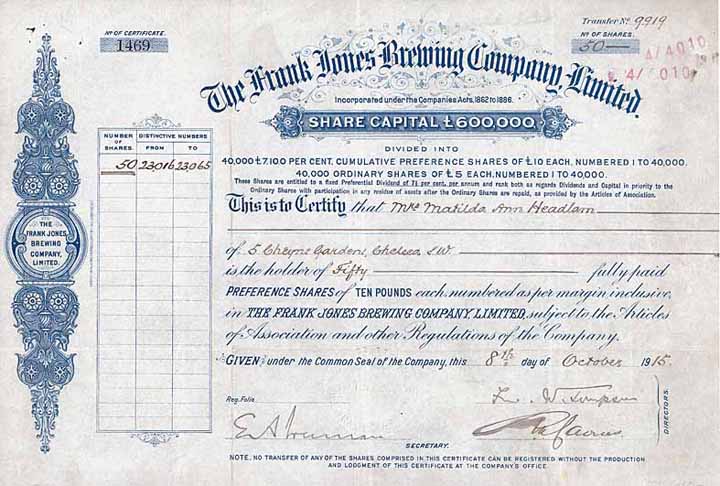 Transfer No. 9919
No OF CERTIFICATE.
1469
No OF SHARES.
50
4/4010
4/ 010
The Frank Jones Brewing Company, Limited.
Incorporated under the Companies Acts, 1862 to 1886.
SHARE CAPITAL £600,000,
DIVIDED INTO
40,000 £7.10.0 PER CENT. CUMULATIVE PREFERENCE SHARES OF £10 EACH, NUMBERED 1 TO 40,000.
40,000 ORDINARY SHARES OF £5 EACH, NUMBERED 1 TO 40,000.
These Shares are entitled to a fixed Preferential Dividend of 7½ per cent. per annum and rank both as regards Dividends and Capital in priority to the
Ordinary Shares with participation in any residue of assets after the Ordinary Shares are repaid, as provided by the Articles of Association.
NUMBER OF SHARES.
DISTINCTIVE NUMBERS
FROM TO
50 23016 23065
THE FRANK JONES BREWING COMPANY, LIMITED.
This is to Certify that Mrs Matilda Ann Headlam
of 5 Cheyne Gardens, Chelsea S.W.
is the holder of Fifty fully paid
PREFERENCE SHARES of TEN POUNDS each, numbered as per margin inclusive,
in THE FRANK JONES BREWING COMPANY LIMITED, subject to the Articles
of Association and other Regulations of the Company.
GIVEN under the Common Seal of the Company, this 8th day of October 1915.
Reg. Folio
DIRECTORS.
SECRETARY.
NOTE, NO TRANSFER OF ANY OF THE SHARES COMPRISED IN THIS CERTIFICATE CAN BE REGISTERED WITHOUT THE PRODUCTION
AND LODGMENT OF THIS CERTIFICATE AT THE COMPANY'S OFFICE.